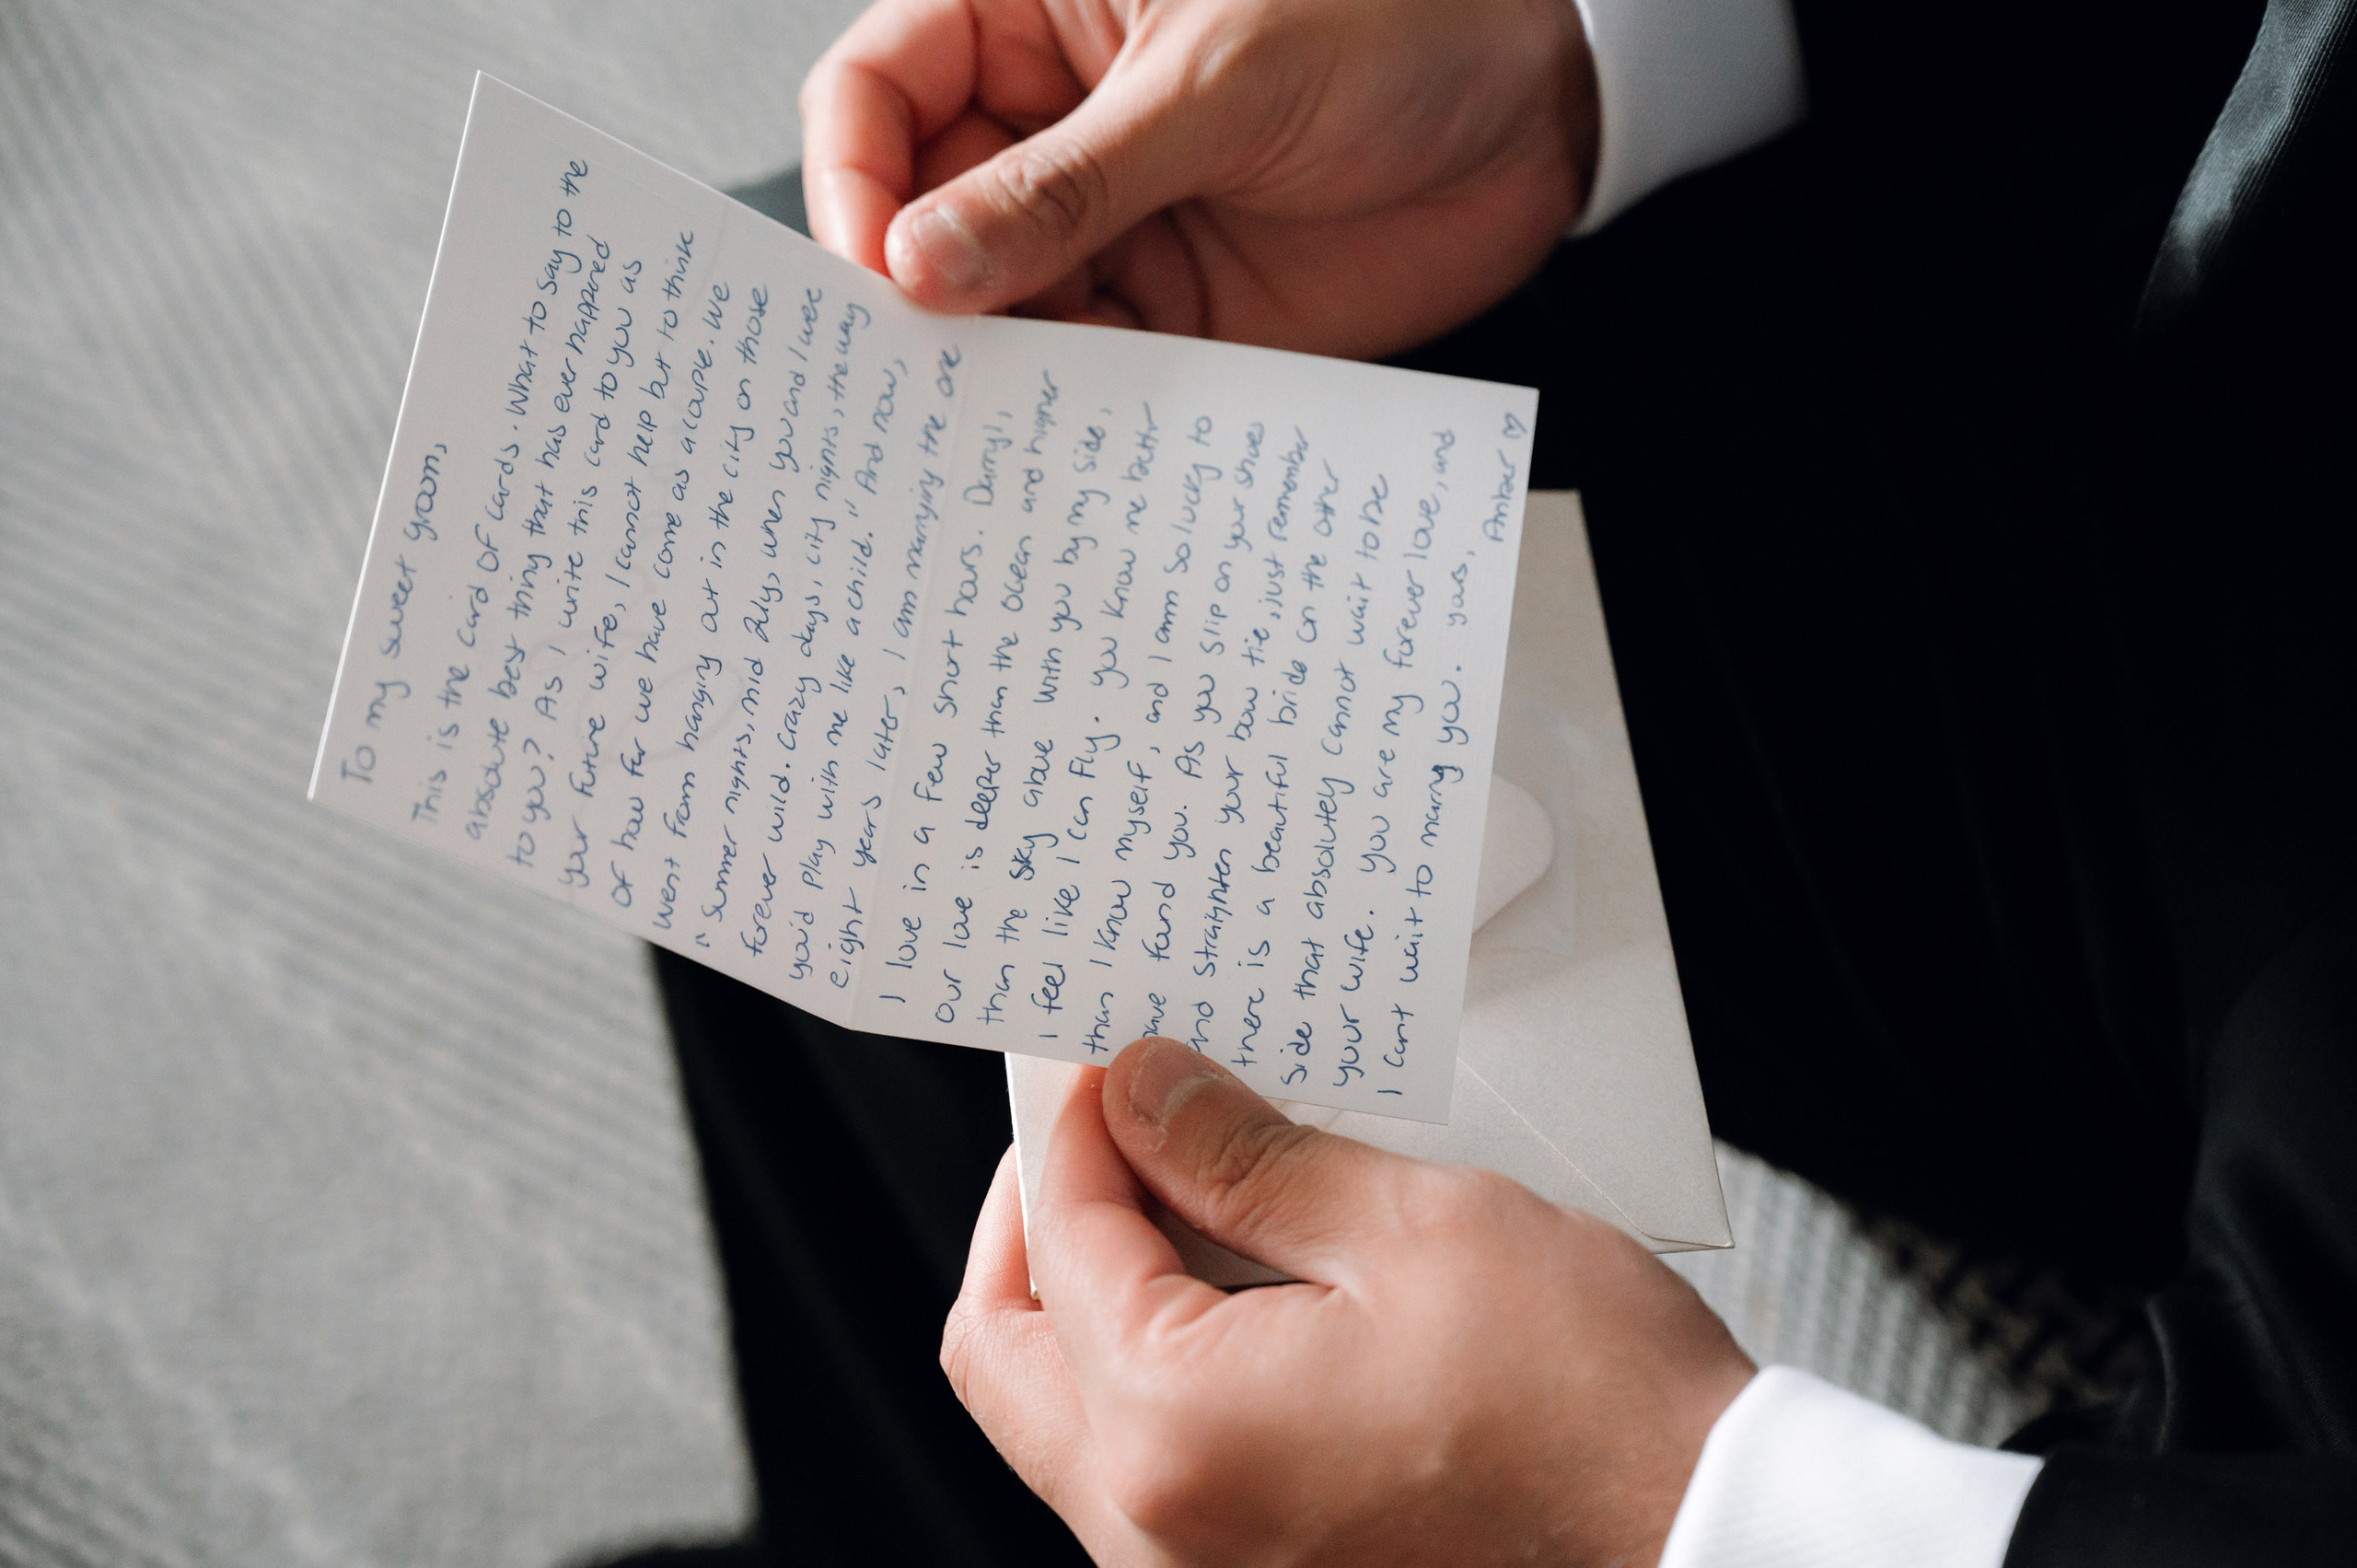 To my sweet groom,
This is the card of cards. What to say to the
absolute best thing that has ever happened
to you? As I write this card to you as
your future wife, I cannot help but to think
of how far we have come as a couple. We
went from hanging out in the city on those
"summer nights, mid July, when you and I were
forever wild. Crazy days, city nights, the way
you'd play with me like a child." And now,
eight years later, I am marrying the one
I love in a few short hours. Darryl,
our love is deeper than the ocean and higher
than the sky above. With you by my side,
I feel like I can fly. you know me better
than I know myself, and I am so lucky to
have found you. As you slip on your shoes
and straighten your bow tie, just remember
there is a beautiful bride on the other
side that absolutely cannot wait to be
your wife. you are my forever love, and
I cant wait to marry you. yours,
Amber ♡